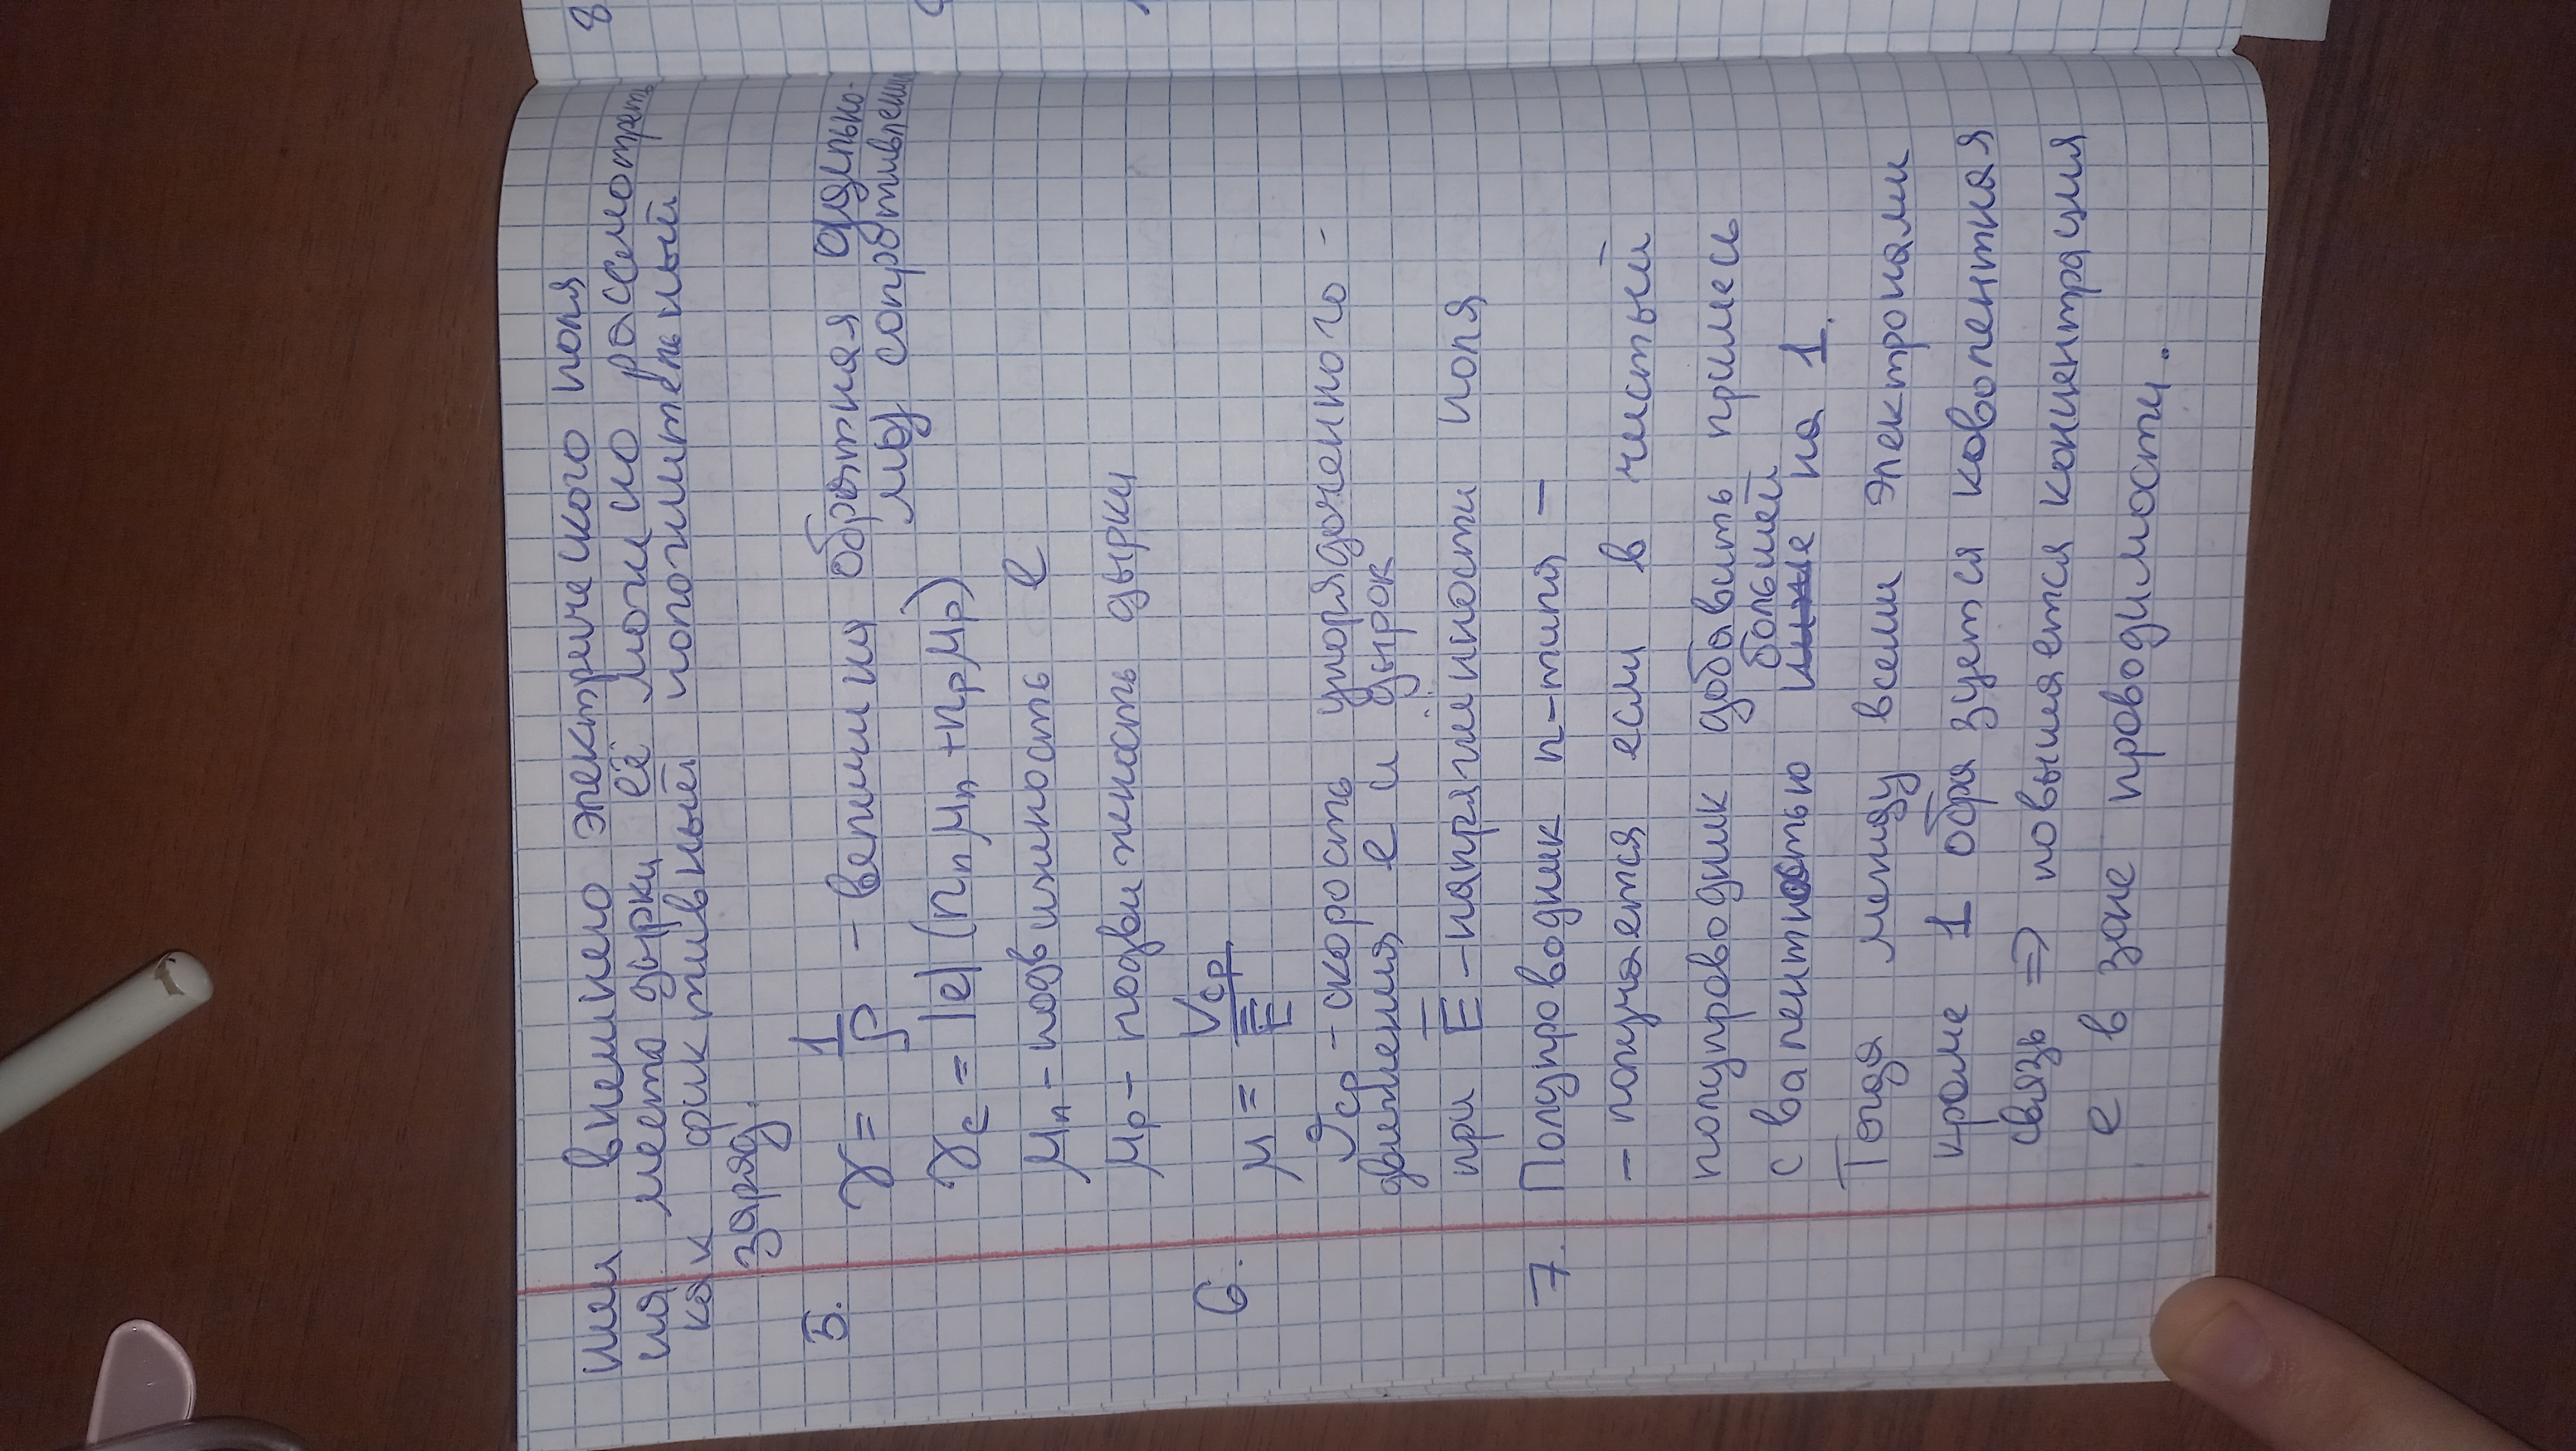 нии внешнего электрического поля
на место дырки её можно рассмотреть
как фиктивный положительный
заряд.
5. γ = 1/ρ - величина обратная удельно-
му сопротивлению
γc = |e| (nn μn + np μp)
μn - подвижность e
μp - подвижность дырки
6. μ = Vср / E
υср - скорость упорядоченного -
движения e и дырок
при E̅ - напряжённости поля
7. Полупроводник n-типа -
- получается если в чистый
полупроводник добавить примесь
большей
с валентностью ниже на 1.
Тогда между всеми электронами
кроме 1 образуется ковалентная
связь => повышается концентрация
e в зоне проводимости.
8